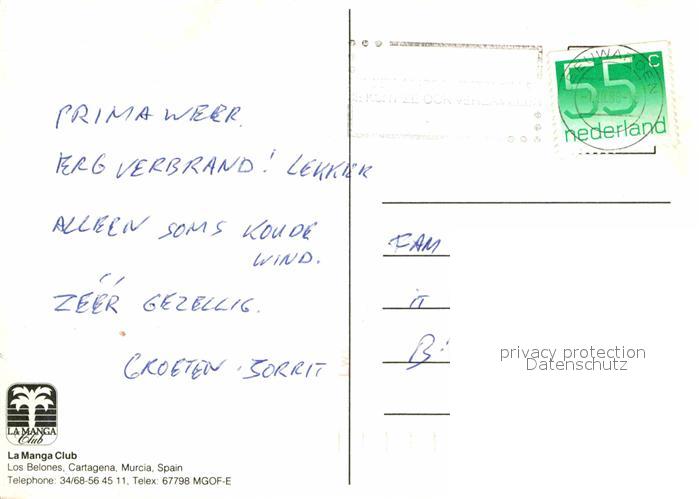 PRIMA WEER.
ERG VERBRAND! LEKKER
ALLEEN SOMS KOUDE
WIND.
ZÉÉR GEZELLIG.
GROETEN JORRIT
FAM
B
55 c
nederland
privacy protection
Datenschutz
LA MANGA
Club
La Manga Club
Los Belones, Cartagena, Murcia, Spain
Telephone: 34/68-56 45 11, Telex: 67798 MGOF-E